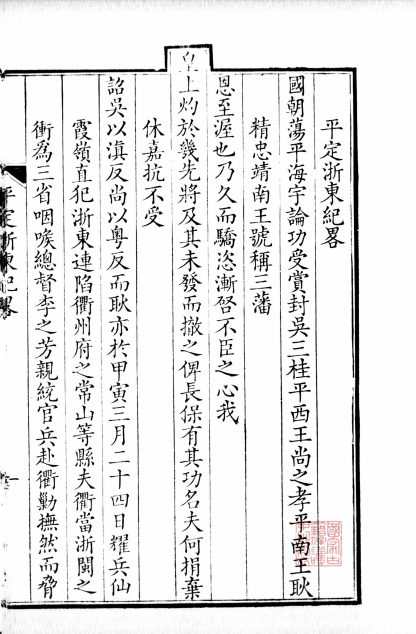 平定浙東紀畧
國朝蕩平海宇論功受賞封吳三桂平西王尚之孝平南王耿
精忠靖南王號稱三藩
恩至渥也乃久而驕恣漸啓不臣之心我
皇上灼於幾先將及其未發而撤之俾長保有其功名夫何捐棄
休嘉抗不受
詔吳以滇反尚以粤反而耿亦於甲寅三月二十四日耀兵仙
霞嶺直犯浙東連陷衢州府之常山等縣夫衢當浙閩之
衝為三省咽喉總督李之芳親統官兵赴衢勦撫然而脅
平定浙東紀畧
一